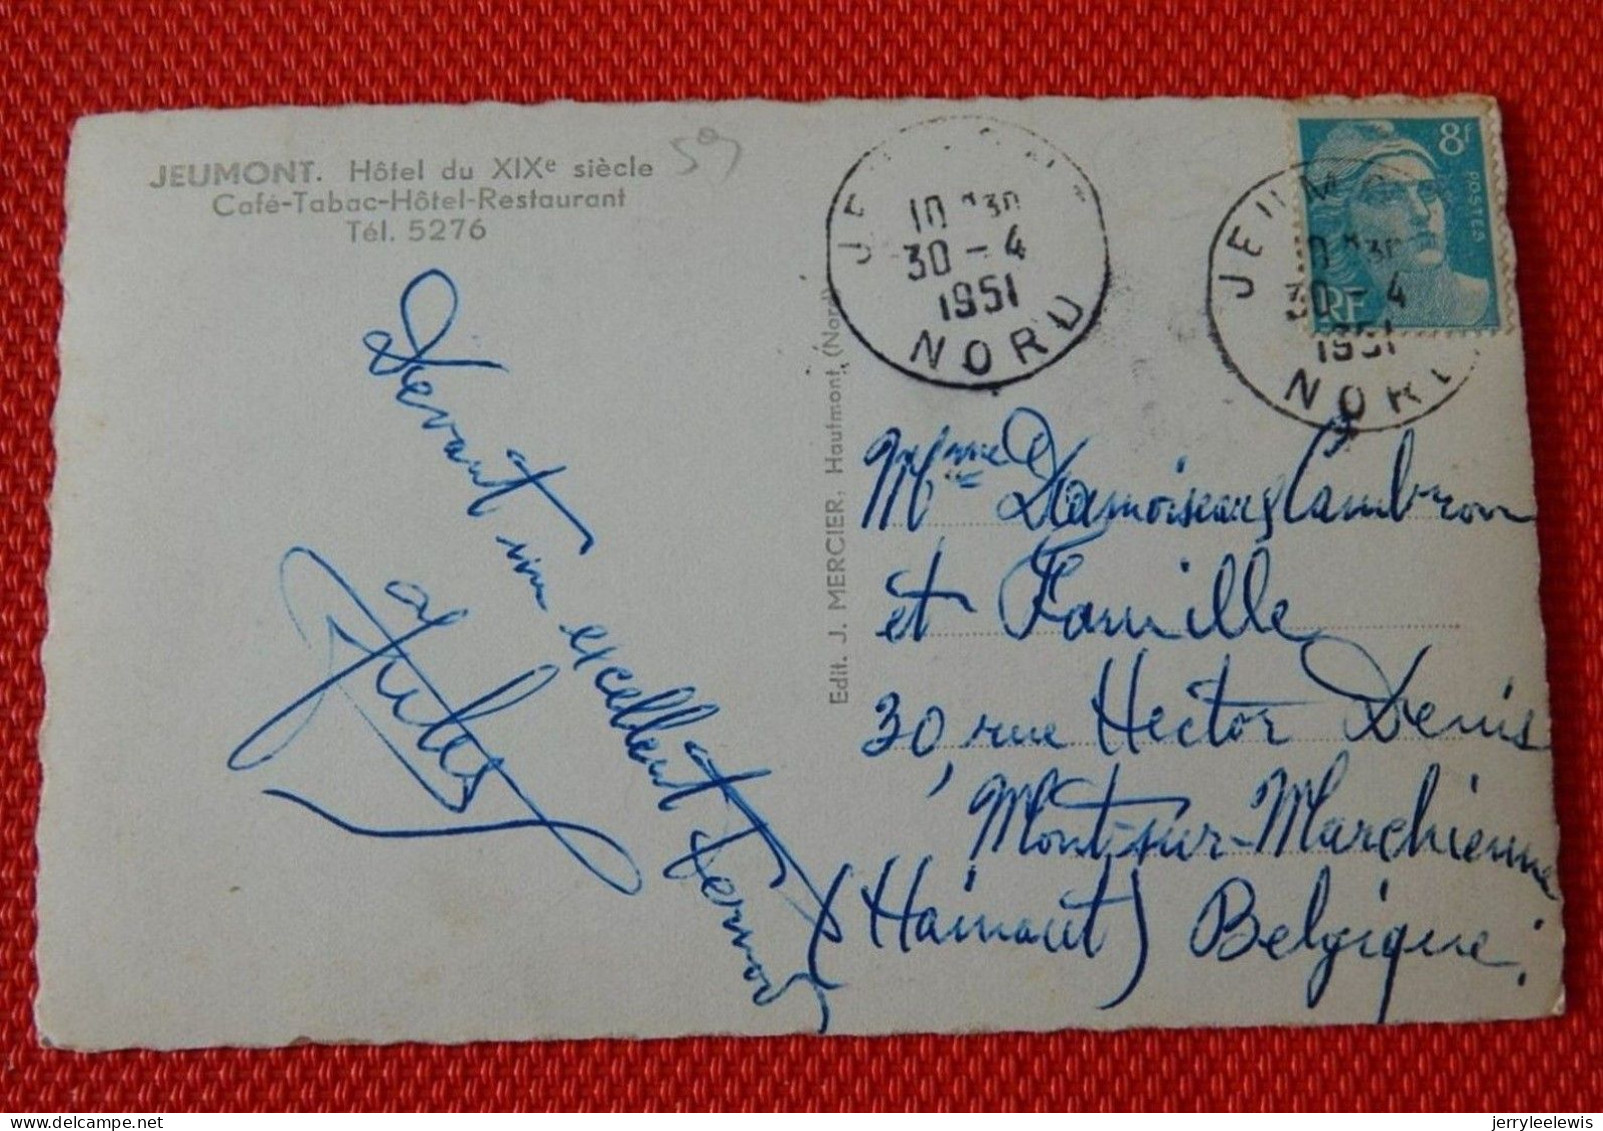 JEUMONT. Hôtel du XIXe siècle
Café-Tabac-Hôtel-Restaurant
Tél. 5276
59
Devant un excellent Pernod
Jules
Edit. J. MERCIER, Haumont (Nord)
10 H30
30 - 4
1951
NORD
8f
POSTES
RF
JEUMONT
10 H30
30 - 4
1951
NORD
Mme Damoiseaux Cambron
et Famille
30, rue Hector Denis
Mont-sur-Marchienne
(Hainaut) Belgique.
jerryleelewis